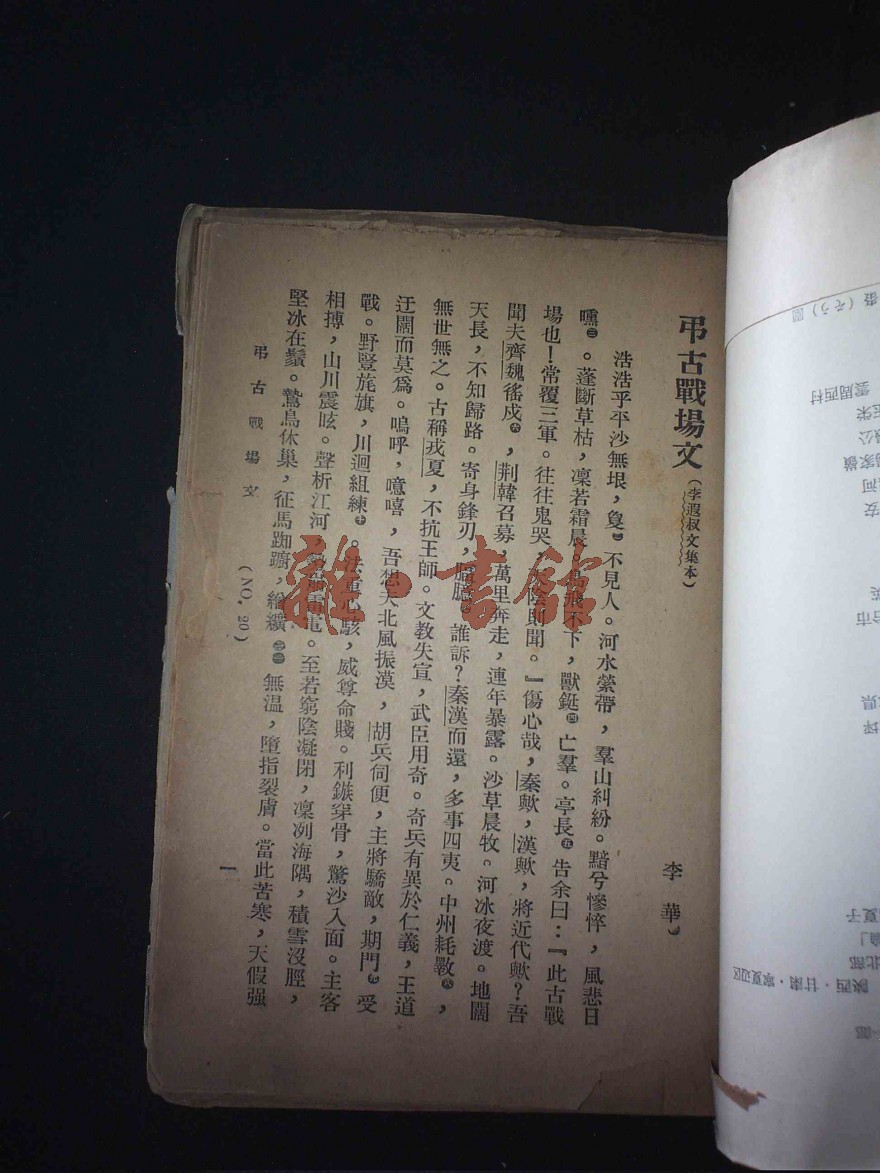 弔古戰場文(李遐叔文集本)
李華
浩浩乎平沙無垠，敻不見人。河水縈帶，羣山糾紛。黯兮慘悴，風悲日
曛。蓬斷草枯，凜若霜晨。鳥飛不下，獸鋌亡羣。亭長告余曰：『此古戰
場也！常覆三軍。往往鬼哭，天陰則聞。』傷心哉，秦歟，漢歟，將近代歟？吾
聞夫齊魏徭戍，荆韓召募，萬里奔走，連年暴露。沙草晨牧。河冰夜渡。地闊
天長，不知歸路。寄身鋒刃，腷臆誰訴？秦漢而還，多事四夷。中州耗斁，
無世無之。古稱戎夏，不抗王師。文教失宣，武臣用奇。奇兵有異於仁義，王道
迂闊而莫爲。嗚呼，噫嘻，吾想夫北風振漠，胡兵伺便，主將驕敵，期門受
戰。野豎旄旗，川迴組練。法重心駭，威尊命賤。利鏃穿骨，驚沙入面。主客
相搏，山川震眩。聲析江河，勢崩雷電。至若窮陰凝閉，凜冽海隅，積雪沒脛，
堅冰在鬚。鷙鳥休巢，征馬踟躕，繒纊無温，墮指裂膚。當此苦寒，天假强
弔古戰場文 (NO. 20) 一
雜·書館
雲周西村
陝西·甘肅·寧夏辺区